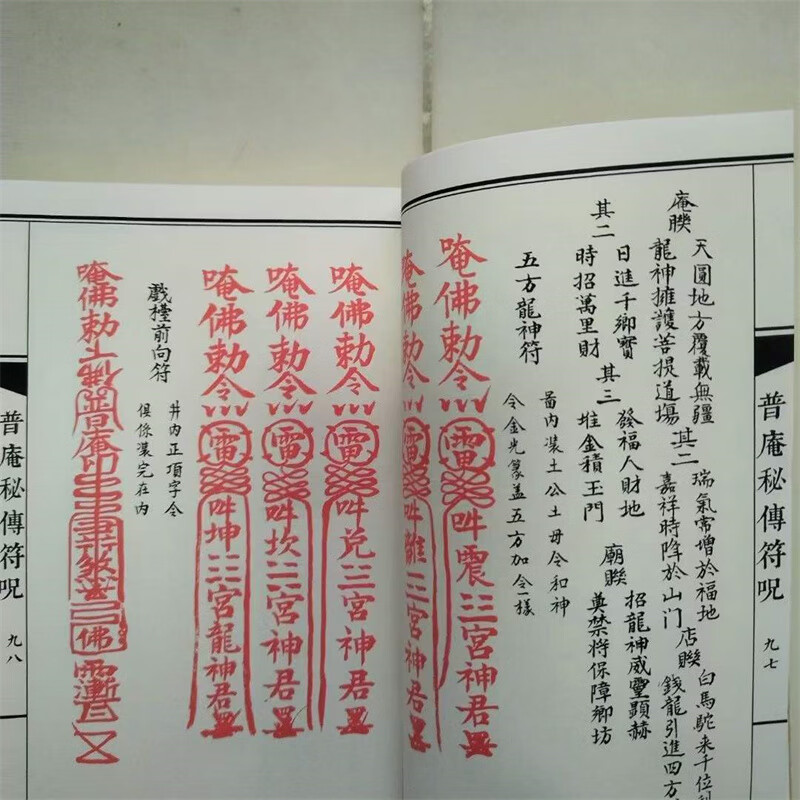 普庵秘傳符呪
九七
庵聯
天圓地方覆載無疆
龍神擁護菩提道場
其二
瑞氣常增於福地
嘉祥時降於山门
店聯
白馬駝来千位
錢龍引進四方
其二
日進千鄉寳
時招萬里財
其三
發福人財地
堆金積玉門
廟聯
招龍神威靈顯赫
奠禁将保障鄉坊
五方龍神符
內裝土公土母令和神
令金光篆盖五方加令一樣
唵佛勅令 雷 吽震三宮神君
唵佛勅令 雷 吽離三宮神君
唵佛勅令 雷 吽兑三宮神君
唵佛勅令 雷 吽坎三宮神君
唵佛勅令 雷 吽坤三宮龍神君
戲檯前向符
井內正項字令
但係裝完在内
唵佛勅下佛普庵印 佛
普庵秘傳符呪
九八